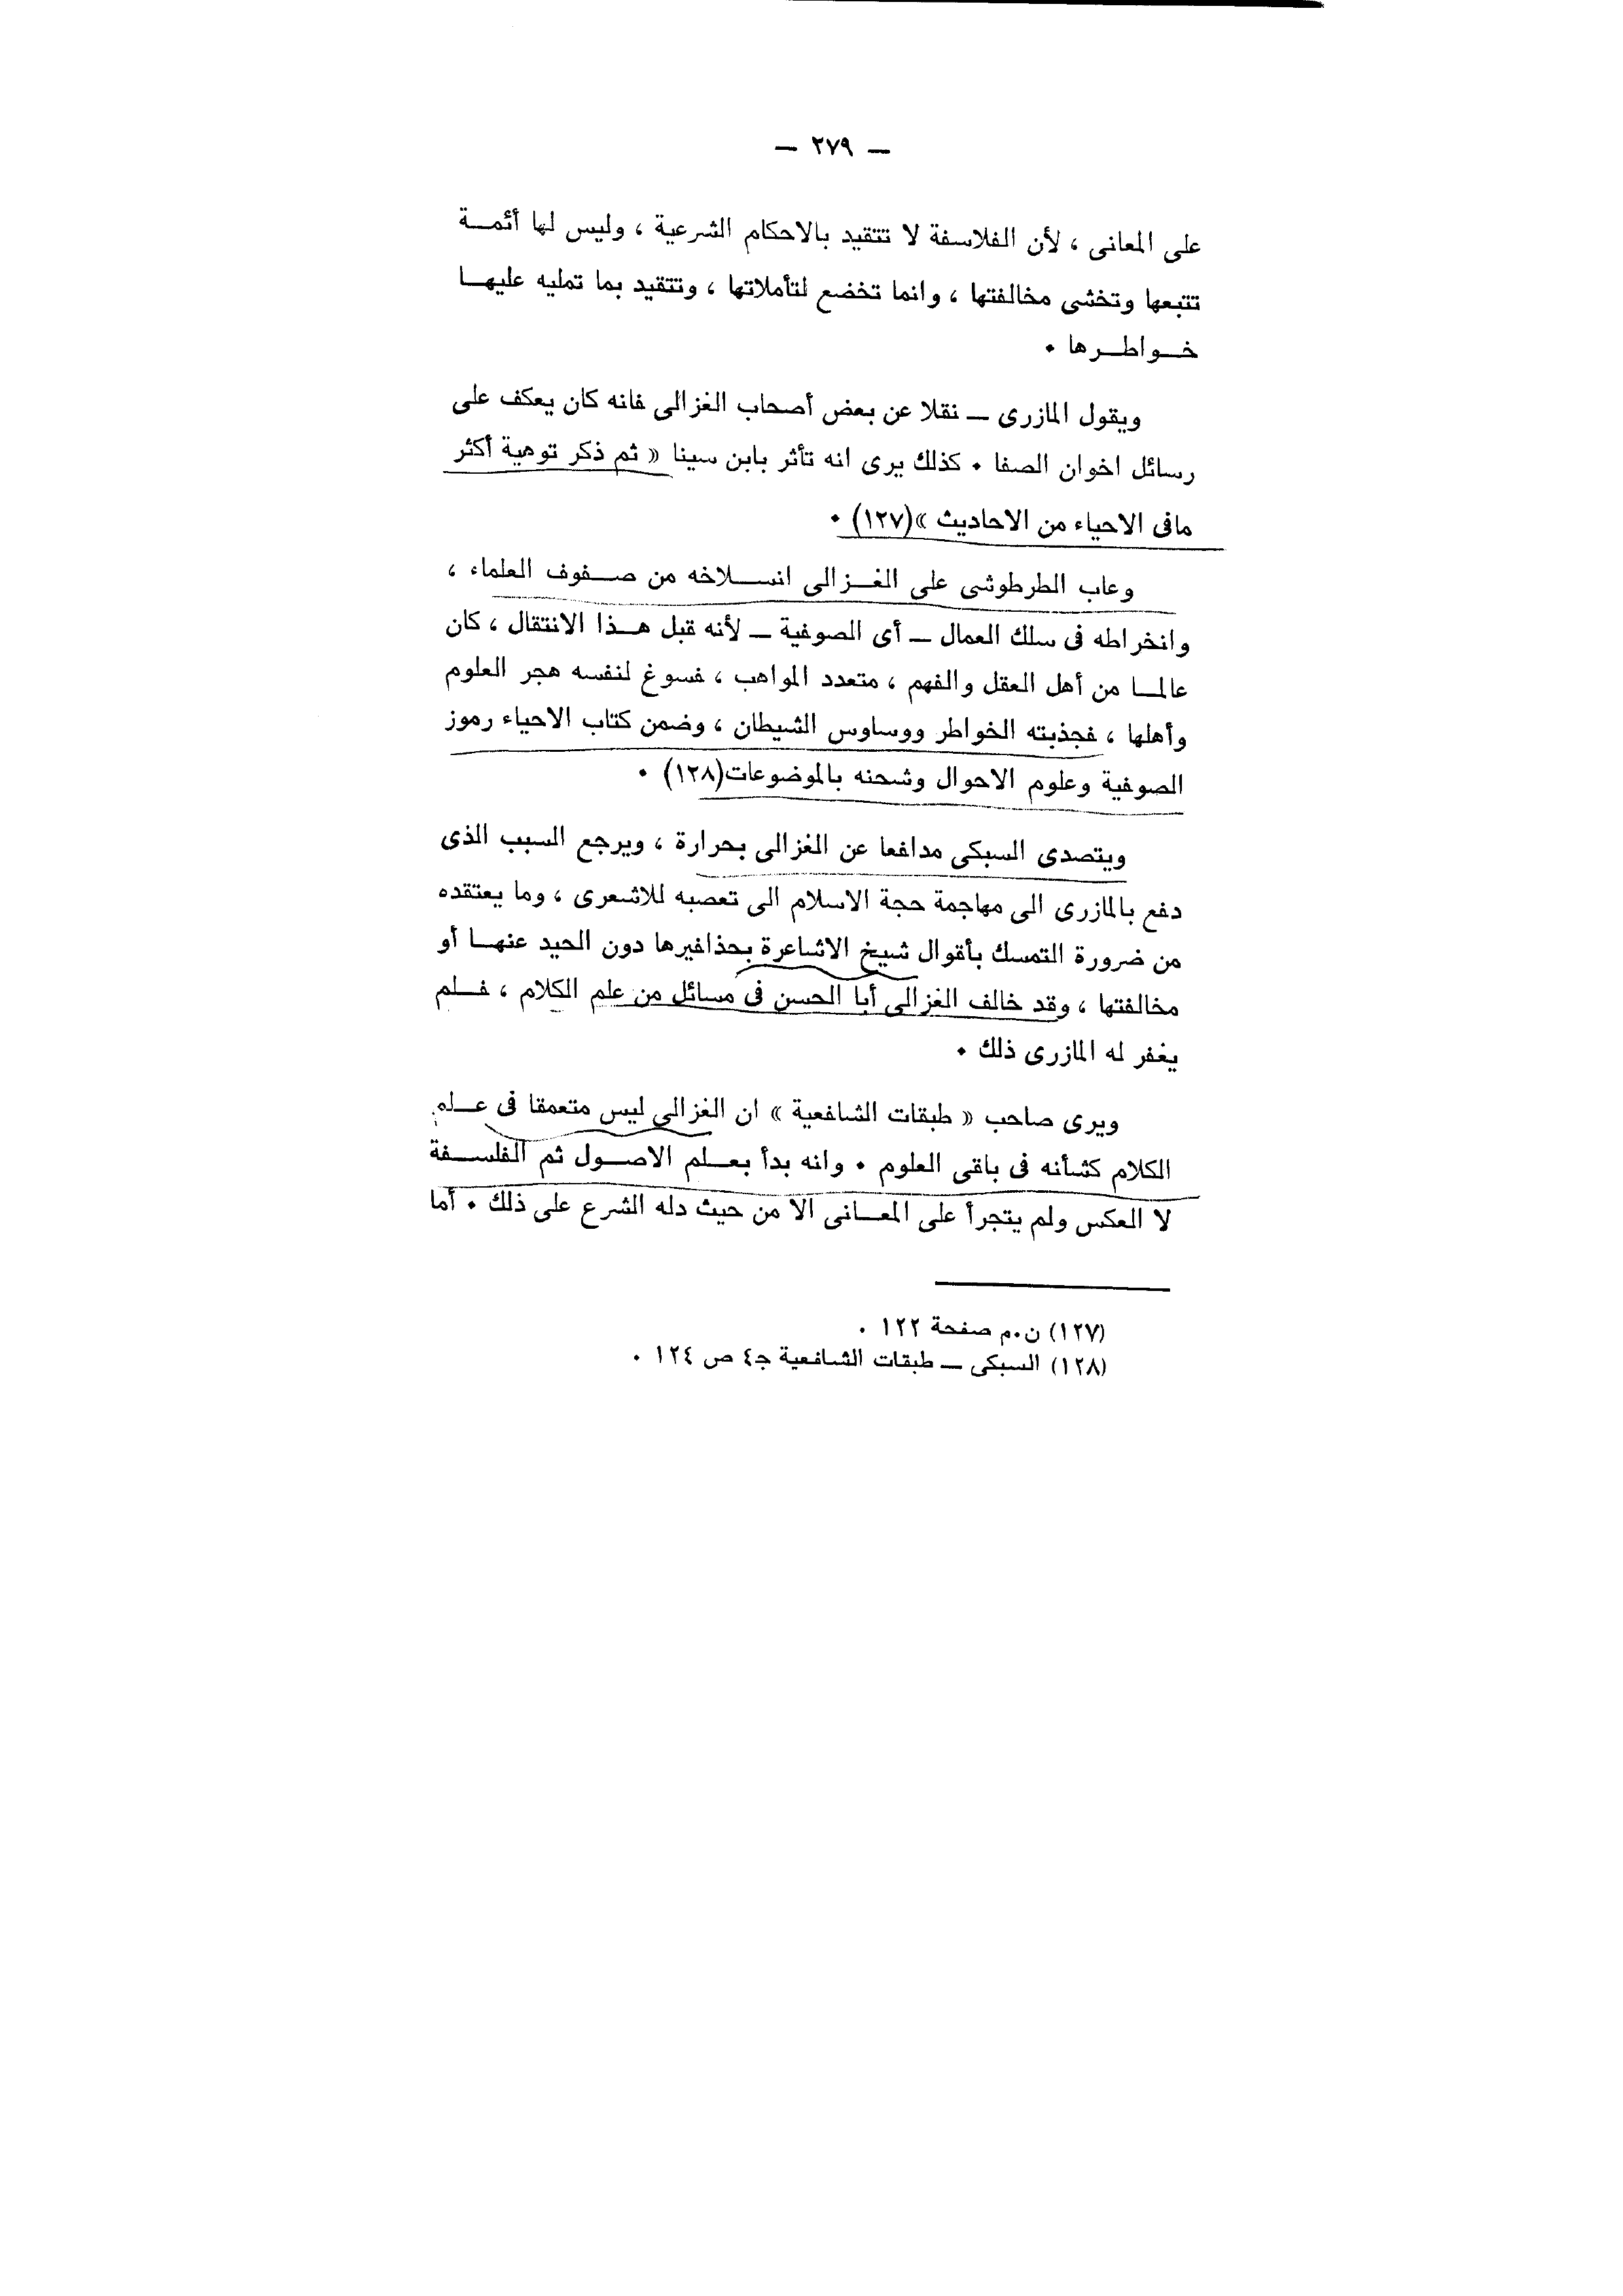 — ٢٧٩ —
على المعانى ، لأن الفلاسفة لا تتقيد بالاحكام الشرعية ، وليس لها أئمــة
تتبعها وتخشى مخالفتها ، وانما تخضع لتأملاتها ، وتتقيد بما تمليه عليهــا
خــواطــرها ٠
ويقول المازرى ــ نقلا عن بعض أصحاب الغزالى فانه كان يعكف على
رسائل اخوان الصفا ٠ كذلك يرى انه تأثر بابن سينا « ثم ذكر توهية أكثر
مافى الاحياء من الاحاديث »(١٢٧) ٠
وعاب الطرطوشى على الغــزالى انســلاخه من صــفوف العلماء ،
وانخراطه فى سلك العمال ــ أى الصوفية ــ لأنه قبل هــذا الانتقال ، كان
عالمــا من أهل العقل والفهم ، متعدد المواهب ، فسوغ لنفسه هجر العلوم
وأهلها ، فجذبته الخواطر ووساوس الشيطان ، وضمن كتاب الاحياء رموز
الصوفية وعلوم الاحوال وشحنه بالموضوعات(١٢٨) ٠
ويتصدى السبكى مدافعا عن الغزالى بحرارة ، ويرجع السبب الذى
دفع بالمازرى الى مهاجمة حجة الاسلام الى تعصبه للاشعرى ، وما يعتقده
من ضرورة التمسك بأقوال شيخ الاشاعرة بحذافيرها دون الحيد عنهــا أو
مخالفتها ، وقد خالف الغزالى أبا الحسن فى مسائل من علم الكلام ، فــلم
يغفر له المازرى ذلك ٠
ويرى صاحب « طبقات الشافعية » ان الغزالى ليس متعمقا فى عــلم
الكلام كشأنه فى باقى العلوم ٠ وانه بدأ بعــلم الاصــول ثم الفلســفة
لا العكس ولم يتجرأ على المعــانى الا من حيث دله الشرع على ذلك ٠ أما
(١٢٧) ن٠م صفحة ١٢٢ ٠
(١٢٨) السبكى ــ طبقات الشافعية جـ٤ ص ١٢٤ ٠